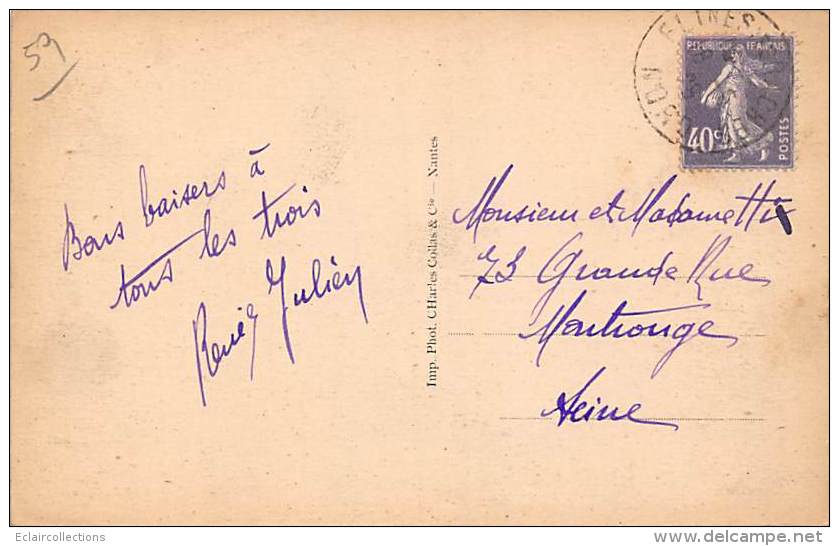 59
Bons baisers à
tous les trois
Julien
Imp. Phot. CHarles Collas & Cie — Nantes
REPUBLIQUE FRANÇAISE
40c
POSTES
Monsieur et Madame
73 Grande Rue
Montrouge
Seine
Eclaircollections
delcampe.net